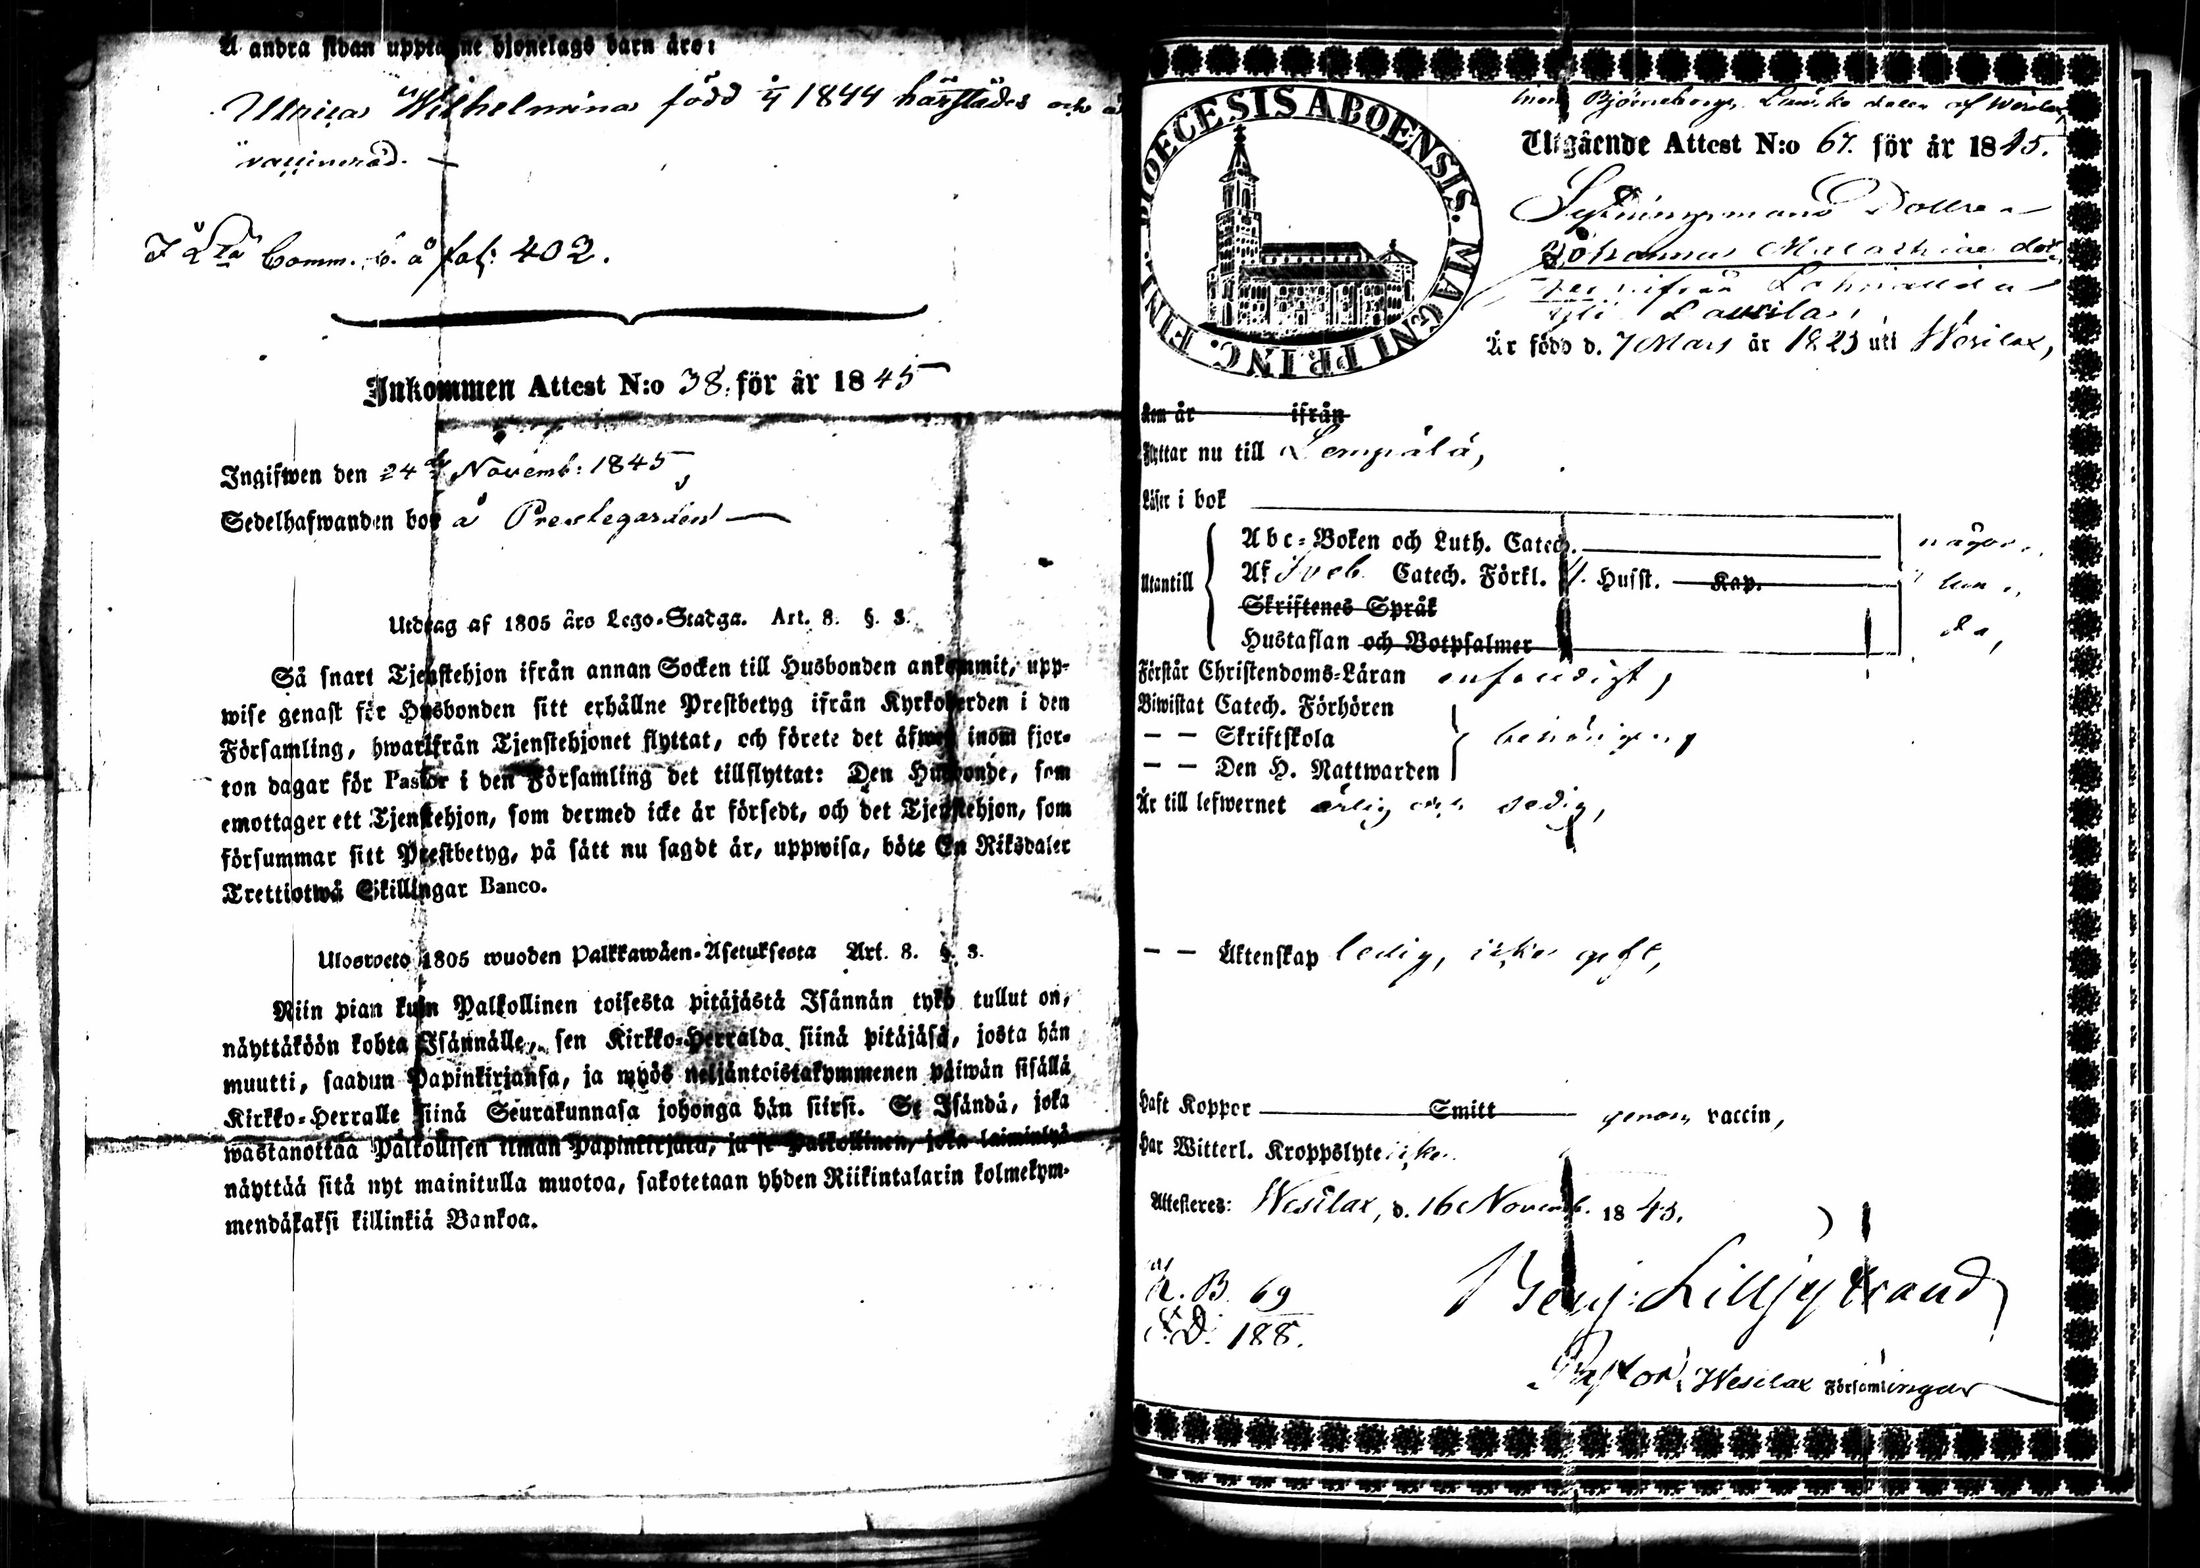 Å andra sidan upptagne hjonelags barn äro:
Ulrica Wilhelmina född 1844 härstädes och
vaccinerad.
Comm. b. å fol: 402.
Inkommen Attest N:o 38. för år 1845
Ingifwen den 24de Novemb: 1845,
Sedelhafwanden bor å Prestegården
Utdrag af 1805 års Lego-Stadga. Art. 8. §. 3.
Så snart Tjenstehjon ifrån annan Socken till Husbonden ankommit, upp-
wise genast för Husbonden sitt erhållne Prestbetyg ifrån Kyrkoherden i den
Församling, hwarifrån Tjenstehjonet flyttat, och förete det äfwen inom fjor-
ton dagar för Pastor i den Församling det tillflyttat: Den Husbonde, som
emottager ett Tjenstehjon, som dermed icke är försedt, och det Tjenstehjon, som
försummar sitt Prestbetyg, på sätt nu sagdt är, uppwisa, böte En Riksdaler
Trettiotwå Skillingar Banco.
Ulosweto 1805 wuoden Palkkawäen-Asetuksesta Art. 8. §. 3.
Niin pian kuin Palkollinen toisesta pitäjästä Isännän tykö tullut on,
näyttäköön kohta Isännälle, sen Kirkko-Herralda siinä pitäjäsä, josta hän
muutti, saadun Papinkirjansa, ja myös neljäntoistakymmenen päiwän sisällä
Kirkko-Herralle siinä Seurakunnasa johonga hän siirsi. Se Isändä, joka
wastanottaa Palkollisen ilman Papinkirjata, ja se Palkollinen, joka laiminlyö
näyttää sitä nyt mainitulla muotoa, sakotetaan yhden Riikintalarin kolmekym-
mendäkaksi killinkiä Bankoa.
DIOECESIS ABOENSIS. MAGNI PRINC. FINL.
Björneborgs af Wesilax
Utgående Attest N:o 67. för år 1845.
Johanna
ifrån
Laurila,
Är född d. 7 Mars år 1823 uti Wesilax,
Kom år ifrån
Flyttar nu till Lempälä,
Läser i bok
Utantill
Abc-Boken och Luth. Catech.
Af Sveb. Catech. Förkl. Husst. Kap.
Skriftenes Språk
Hustaflan och Botpsalmer
Förstår Christendoms-Läran enfaldigt,
Biwistat Catech. Förhören
— — Skriftskola behörigen,
— — Den H. Nattwarden
Är till lefwernet ärlig och sedig,
— — Äktenskap ledig, icke gift,
Haft Koppor Smitt genom vaccin,
Har Witterl. Kroppslyte icke.
Attesteres: Wesilax, d. 16 Novemb. 1845.
K. B. 69
188.
Benj: Lilljestrand
Pastor i Wesilax Församlingar